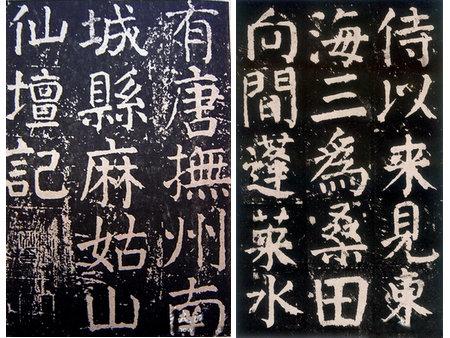 有唐撫州南
城縣麻姑山
仙壇記
侍以来見東
海三為桑田
向間蓬萊水